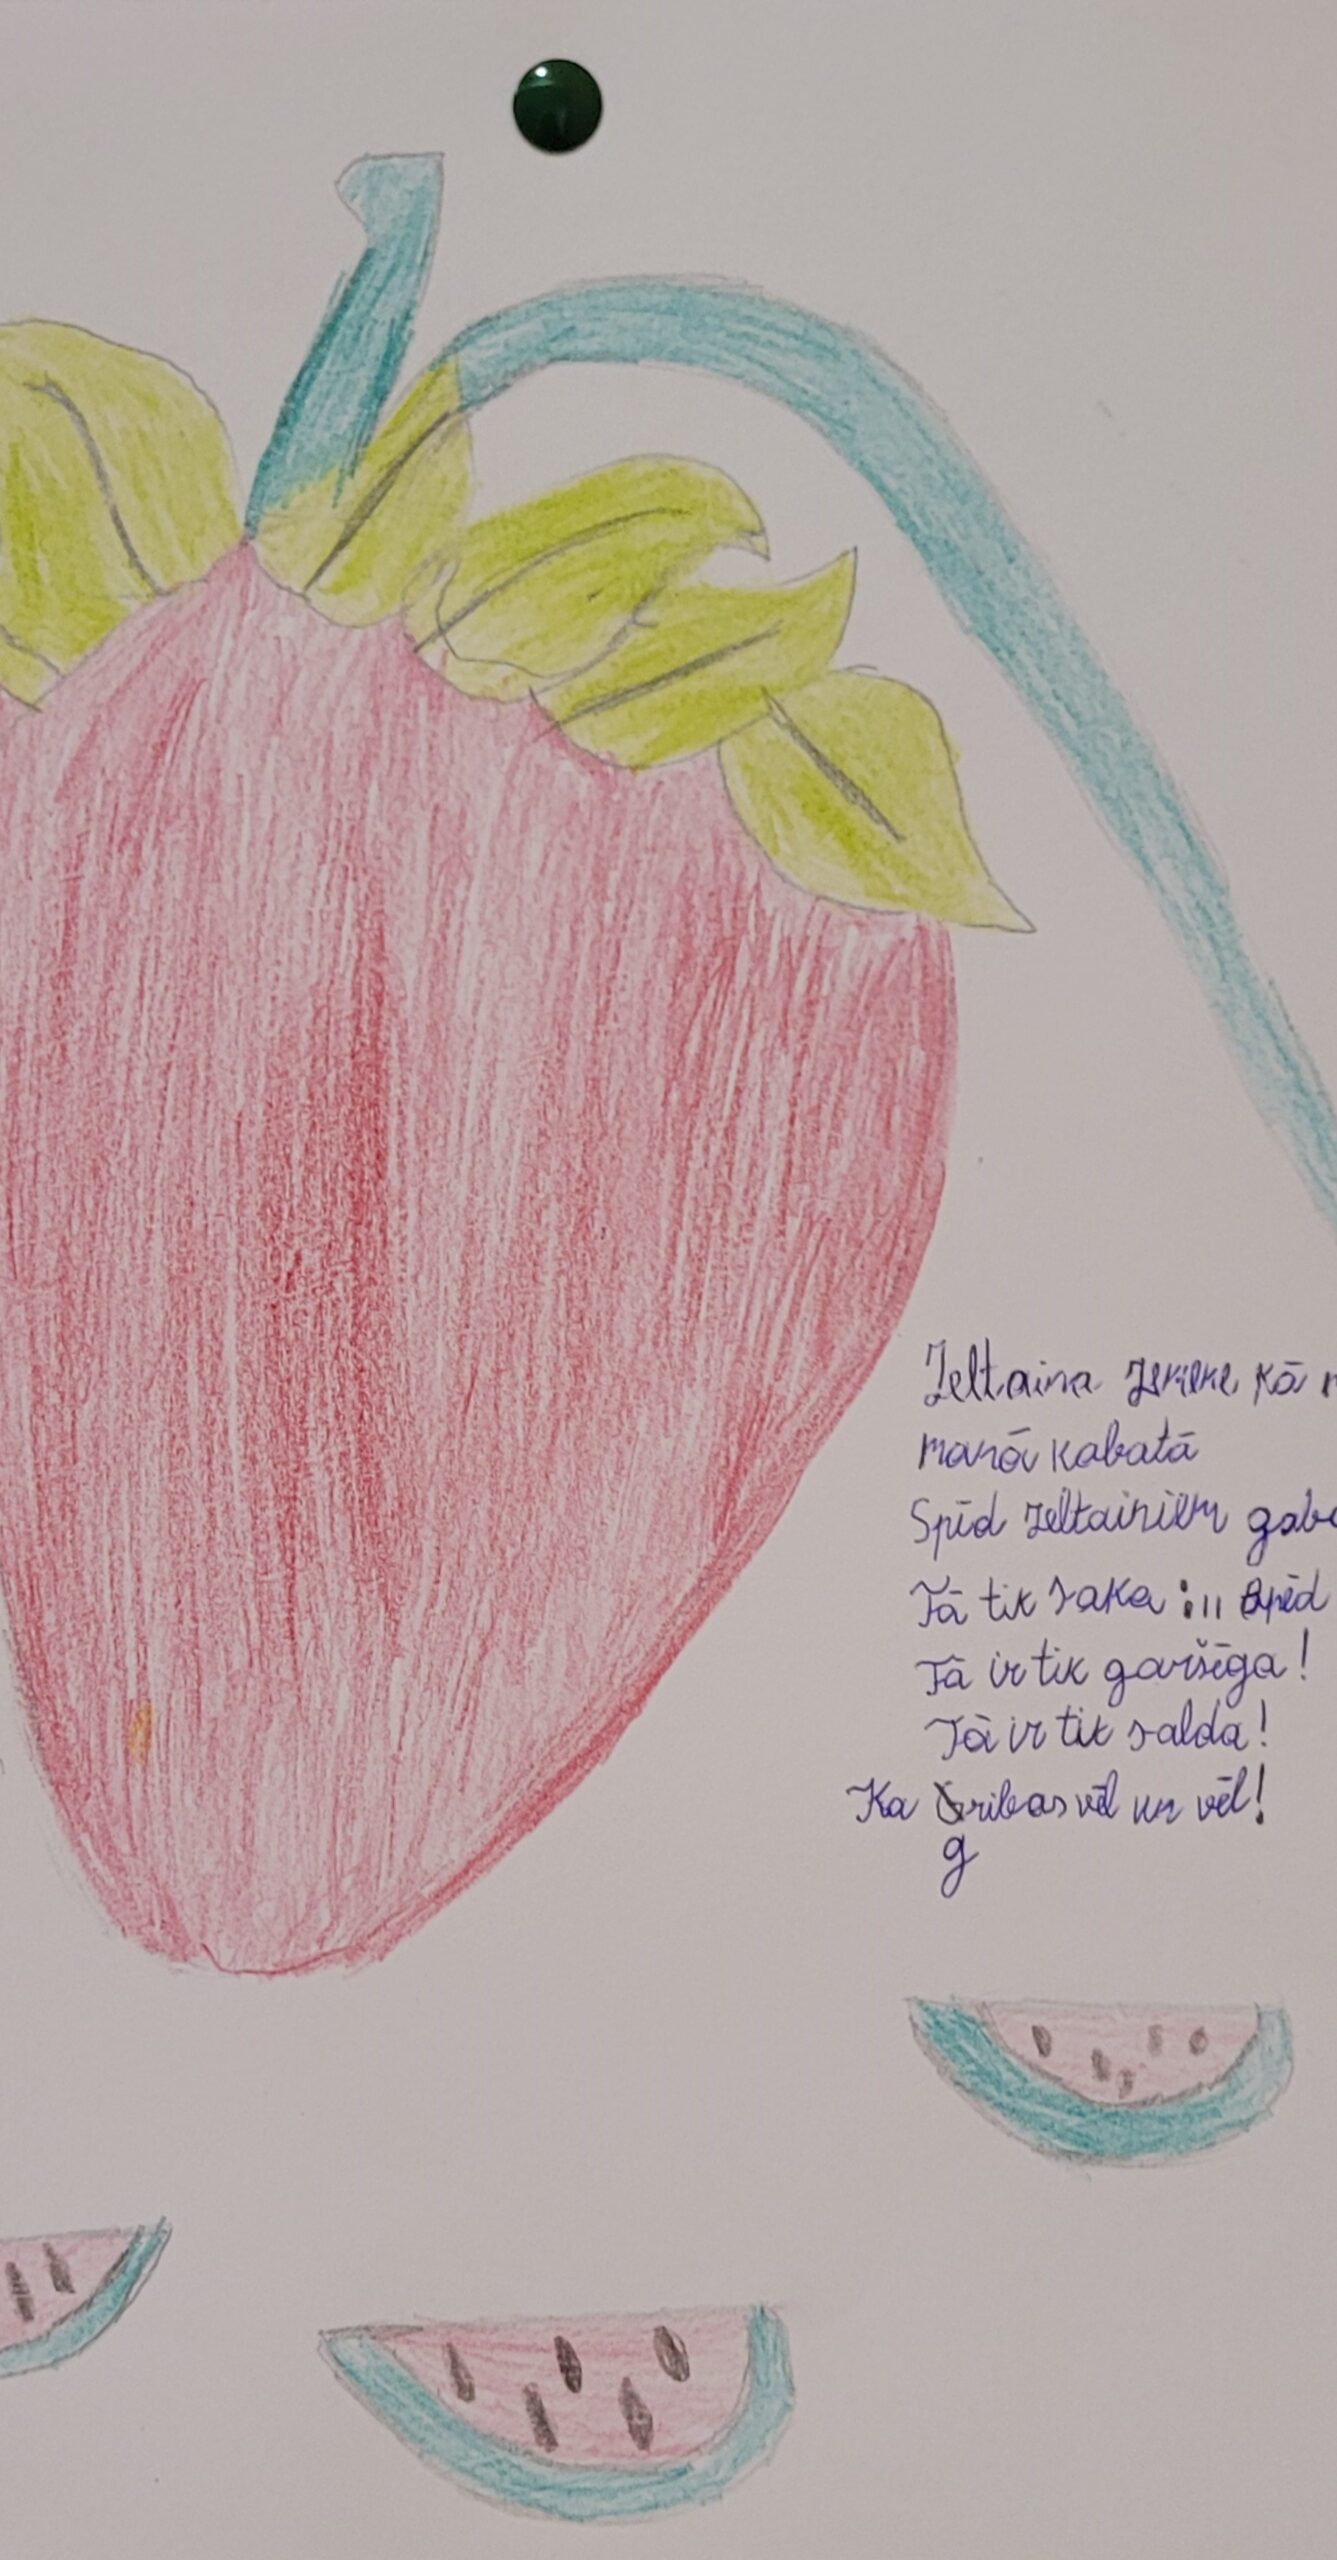 Zeltaina zemene kā
manā kabatā
Spīd zeltainiem
Tā tik saka :" Spīd
Tā ir tik garšīga!
Tā ir tik salda!
Ka gribas vēl un vēl!
g